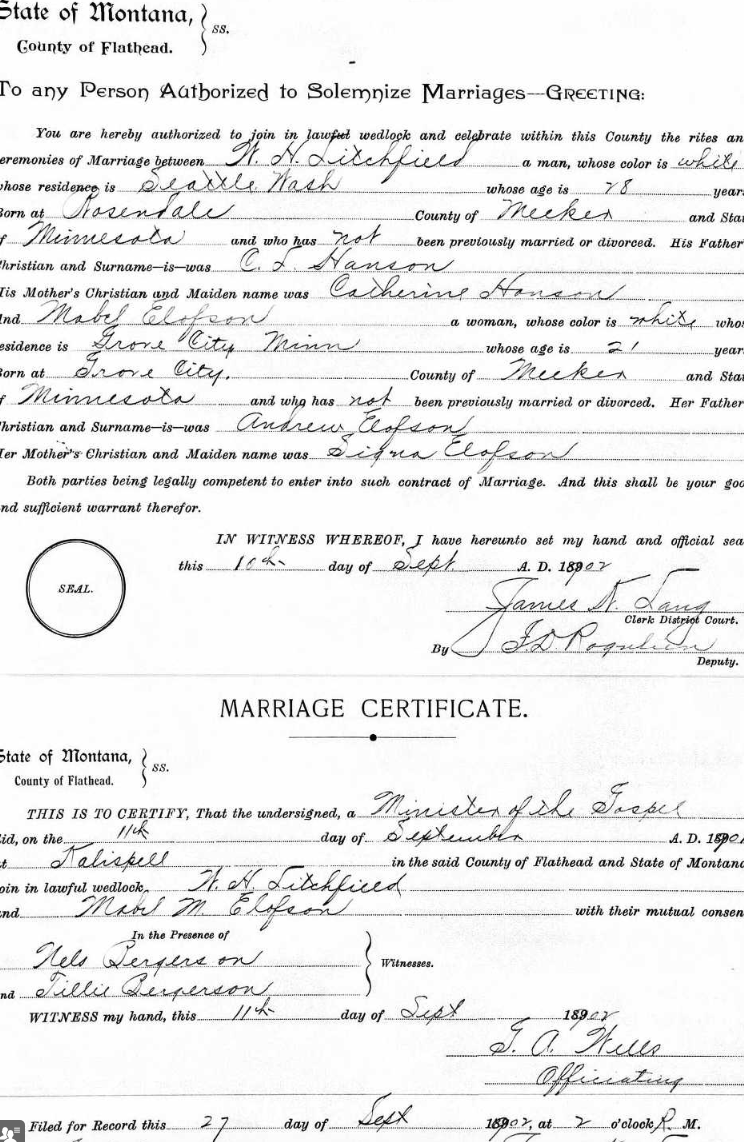 State of Montana, } ss.
County of Flathead.
To any Person Authorized to Solemnize Marriages—GREETING:
You are hereby authorized to join in lawful wedlock and celebrate within this County the rites an
eremonies of Marriage between W. H. Litchfield a man, whose color is white
whose residence is Seattle Wash whose age is 28 year
Born at Rosendale County of Meeker and Sta
f Minnesota and who has not been previously married or divorced. His Father'
Christian and Surname—is—was C. L. Hanson
His Mother's Christian and Maiden name was Catherine Hanson
And Mabel Elofson a woman, whose color is white whos
esidence is Grove City Minn whose age is 21 year
Born at Grove City. County of Meeker and Sta
f Minnesota and who has not been previously married or divorced. Her Father
Christian and Surname—is—was Andrew Elofson
Her Mother's Christian and Maiden name was Signa Elofson
Both parties being legally competent to enter into such contract of Marriage. And this shall be your goo
nd sufficient warrant therefor.
IN WITNESS WHEREOF, I have hereunto set my hand and official sea
SEAL.
this 10th day of Sept A. D. 1902
James N. Lang
Clerk District Court.
By
Deputy.
MARRIAGE CERTIFICATE.
State of Montana, } ss.
County of Flathead.
THIS IS TO CERTIFY, That the undersigned, a Minister of the Gospel
did, on the 11th day of September A. D. 190
at Kalispell in the said County of Flathead and State of Montana
oin in lawful wedlock, W. H. Litchfield
and Mabel M. Elofson with their mutual consen
In the Presence of
Nels Bergerson } Witnesses.
nd Tillie Bergerson
WITNESS my hand, this 11th day of Sept 1902
G. A. Wells
Officiating
Filed for Record this 27 day of Sept 1902, at 2 o'clock P. M.